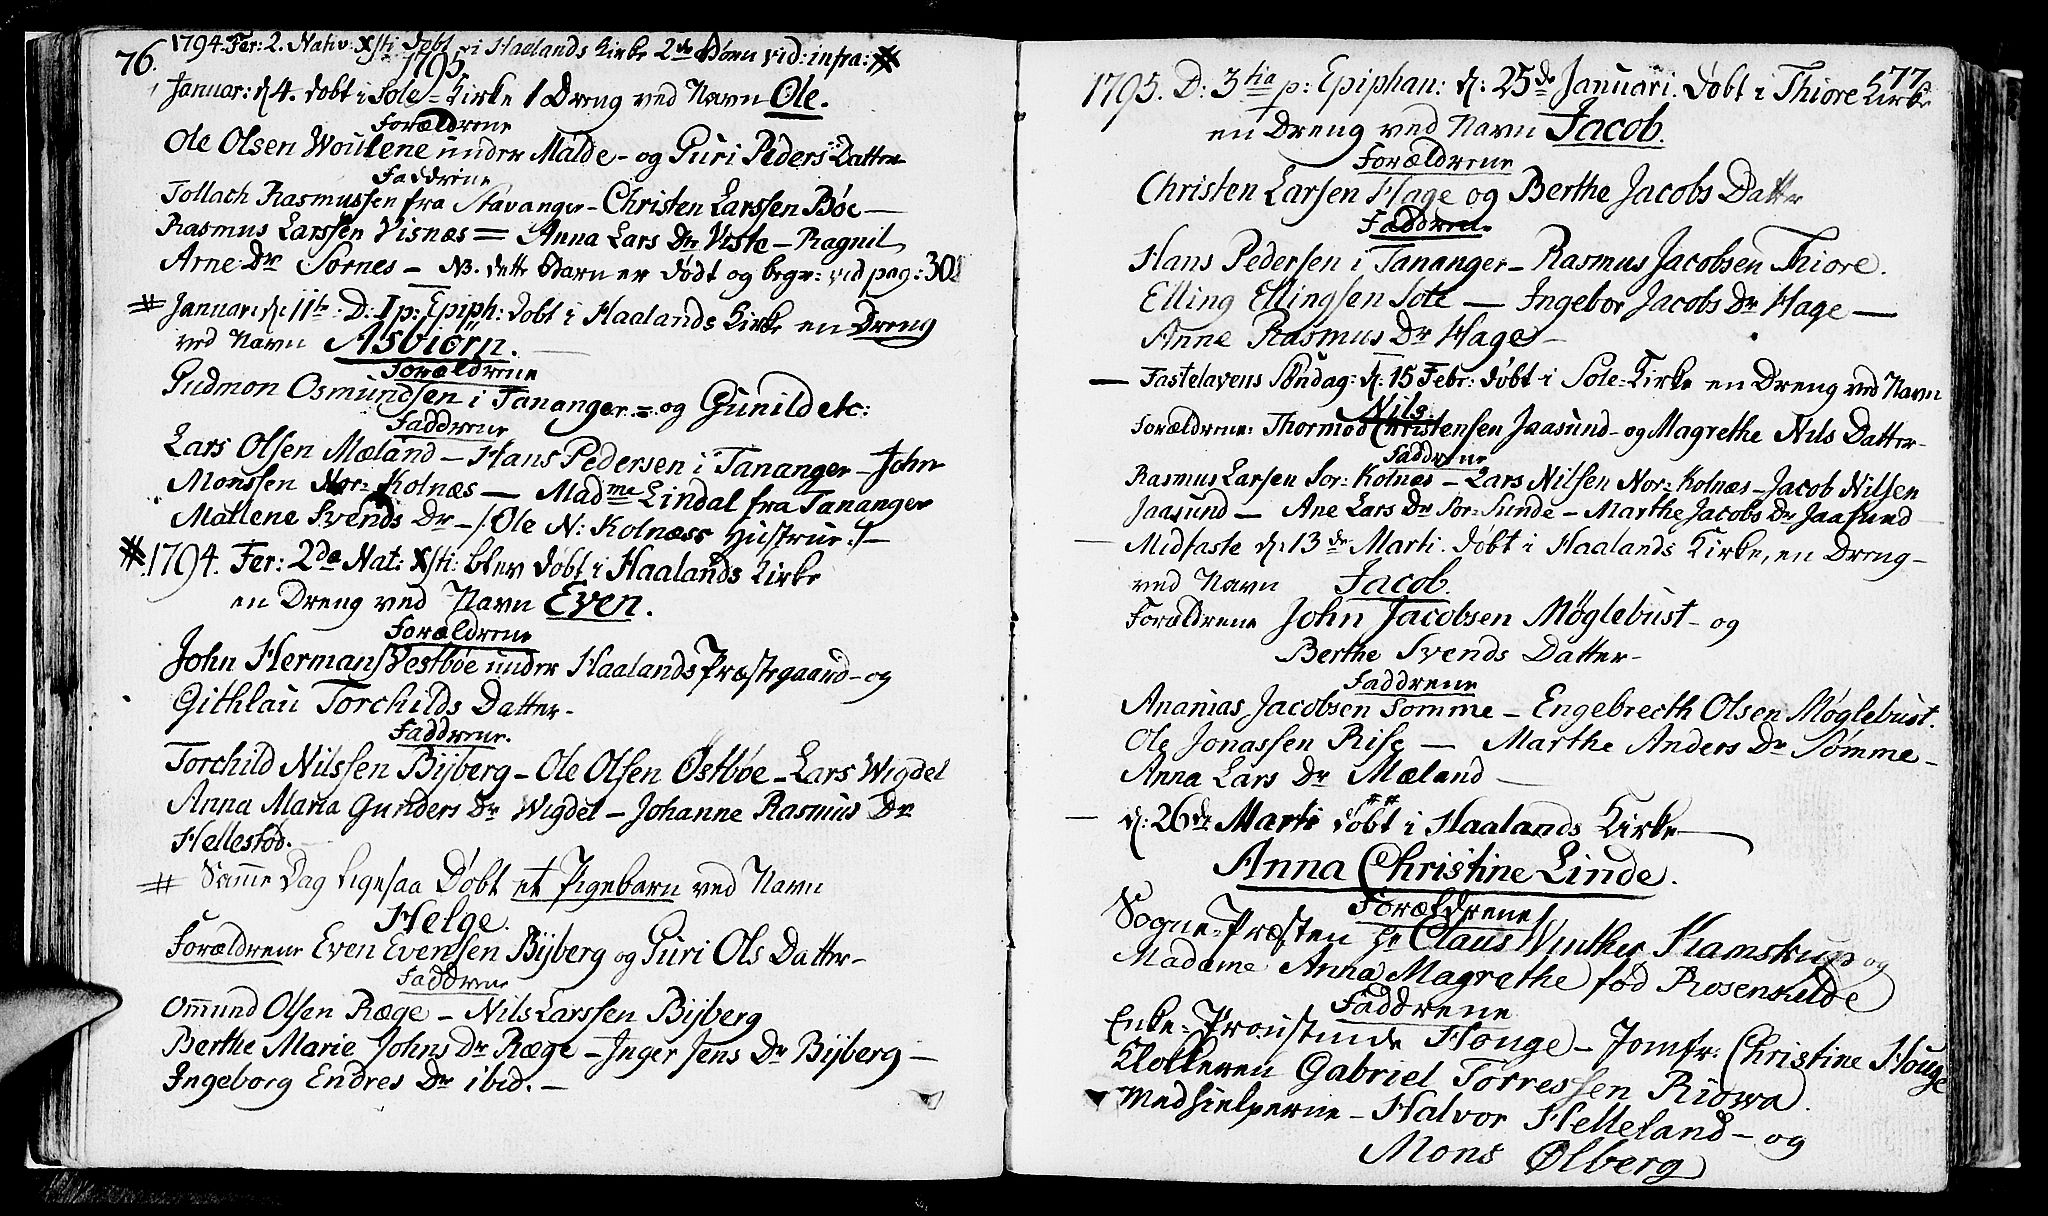 76. 1794. Fer: 2. Nativ: Xsti døbt i Haalands Kirke 2de Børn vid: infra: #
1795
Januar: d 4. døbt i Sole-Kirke 1 Dreng ved Navn Ole.
Forældrene
Ole Olsen Woulene under Malde - og Guri Peders Datter
Faddrene
Tollach Rasmussen fra Stavanger - Christen Larssen Bøe -
Rasmus Larssen Visnæs = Anna Lars Dr Viste - Ragnil
Arne Dr Sørnes - NB. dette Barn er dødt og begr: vid pag: 301
# Januar: d: 11te. D: I p: Epiph: døbt i Haalands Kirke en Dreng
ved Navn Asbiörn.
Forældrene
Gudmon Osmundsen i Tananger = og Gunild etc:
Faddrene
Lars Olsen Mæland - Hans Pedersen i Tananger - John
Monssen Nor: Kolnæs - Madme Lindal fra Tananger
Mallene Svends Dr - /: Ole N: Kolnæss Hustrue :/ -
# 1794. Fer: 2de Nat: Xsti: blev døbt i Haalands Kirke
en Dreng ved Navn Even.
Forældrene
John Hermans Vestbøe under Haalands Præstegaard - og
Githlau Torchilds Datter -
Faddrene.
Torchild Nilssen Bijberg - Ole Olsen Østbøe - Lars Wigdel
Anna Maria Gunders Dr Wigdel - Johanne Rasmus Dr
Hellestød.
# Samme Dag ligesaa Døbt et Pigebarn ved Navn
Helge.
Forældrene Even Evensen Bijberg og Guri Ols Datter -
Faddrene
Ommund Olsen Ræge - Nils Larssen Bijberg
Berthe Marie Johns Dr Ræge - Inger Jens Dr Bijberg -
Ingeborg Endres Dr ibid. -
77.
1795. D: 3tia p: Epiphan: d: 25de Januari. Døbt i Thiore Kirke
en Dreng ved Navn Jacob.
Forældrene
Christen Larsen Hage og Berthe Jacobs Datter
Faddren.
Hans Pedersen i Tananger - Rasmus Jacobsen Thiore.
Elling Ellingsen Sole - Ingebor Jacobs Dr Hage -
Anne Rasmus Dr Hage -
- Fastelavens Søndag: d: 15 Febr: døbt i Sole-Kirke en Dreng ved Navn
Nils.
Forældrene: Thormod Christensen Jaasund - og Magrethe Nils Datter -
Faddrene
Rasmus Larsen Sør: Kolnæs - Lars Nilsen Nor: Kolnæs - Jacob Nilsen
Jaasund - Ane Lars Dr Sør-Sunde - Marthe Jacobs Dr Jaasund
- Midfaste d: 13de Marti. døbt i Haalands Kirke, en Dreng -
ved Navn Jacob.
Forældrene John Jacobsen Møglebust - og
Berthe Svends Datter -
Faddrene
Ananias Jacobsen Sømme - Engebrecth Olsen Møglebust.
Ole Jonassen Rise - Marthe Anders Dr Sømme -
Anna Lars Dr Mæland -
- d: 26de Marti døbt i Haalands Kirke
Anna Christine Linde.
Forældrene
Sogne-Præsten Hr Claus Winther Hamskup og
Madame Anna Magrethe fød Rosenkilde
Faddrene
Enke-Proustinde Houge - Jomfr: Christine Houge
Klokkeren Gabriel Torressen Riowa.
Medhielperne - Halvor Helleland - og
Mons Ølberg